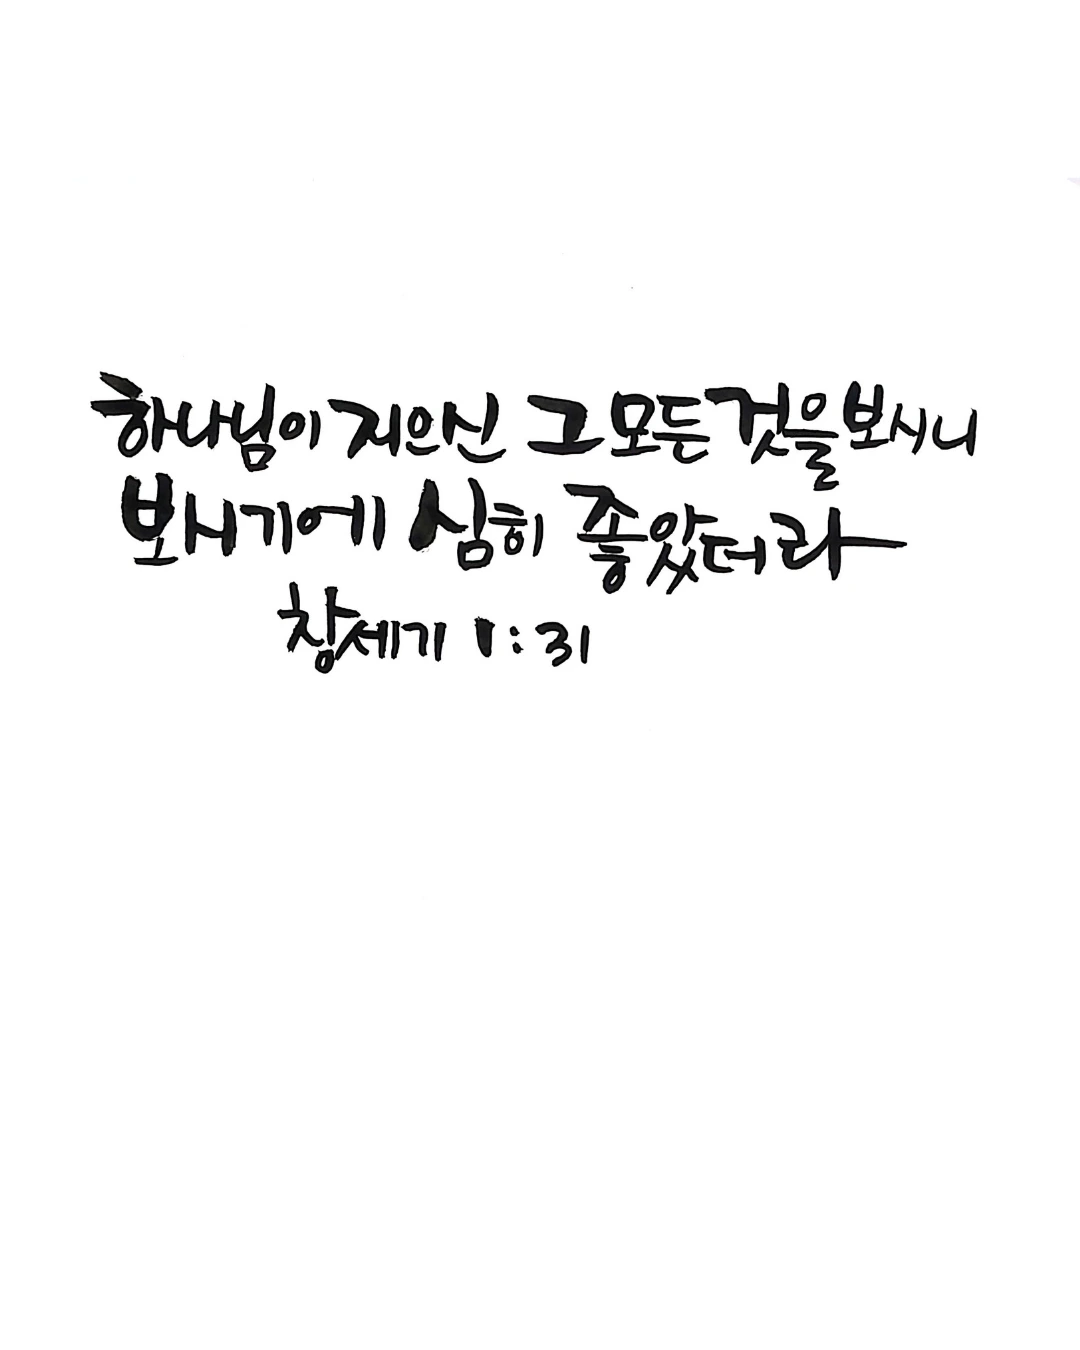 하나님이 지으신 그 모든 것을 보시니
보시기에 심히 좋았더라
창세기 1:31